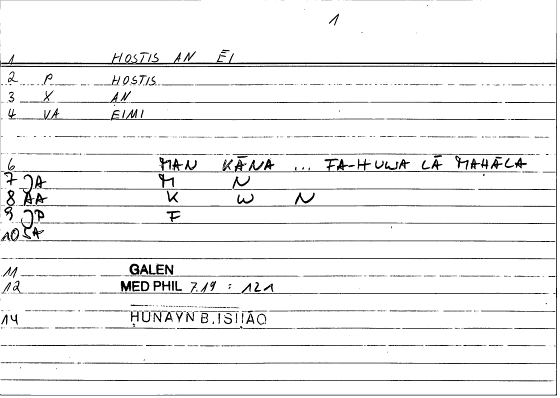 1
1 HOSTIS AN ĒI
2 P HOSTIS
3 X AN
4 VA EIMI
6 MAN KĀNA ... FA-HUWA LĀ MAHĀLA
7 JA M N
8 AA K W N
9 JP F
10 SA
11 GALEN
12 MED PHIL 7.19 : 121
14 ḤUNAYN B. ISḤĀQ